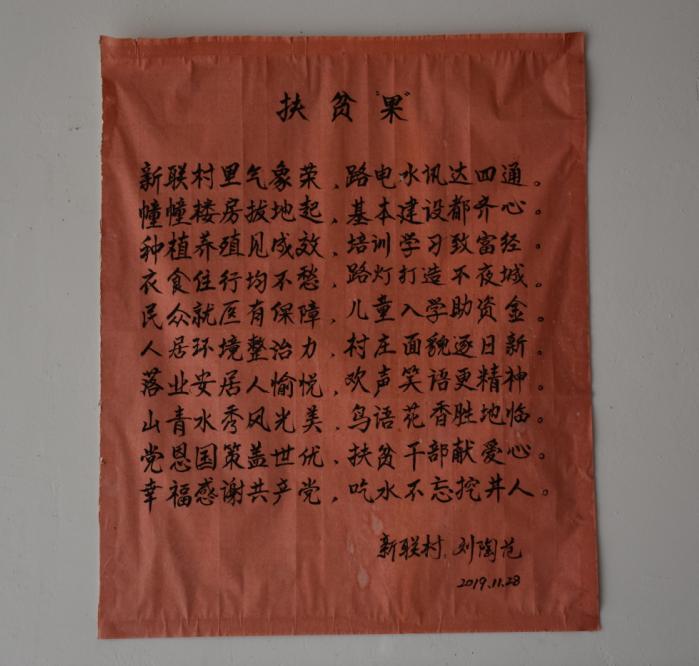 扶贫"果"
新联村里气象荣，路电水讯达四通。
幢幢楼房拔地起，基本建设都齐心。
种植养殖见成效，培训学习致富经。
衣食住行均不愁，路灯打造不夜城。
民众就医有保障，儿童入学助资金。
人居环境整治力，村庄面貌逐日新。
落业安居人愉悦，欢声笑语更精神。
山青水秀风光美，鸟语花香胜地临。
党恩国策盖世优，扶贫干部献爱心。
幸福感谢共产党，吃水不忘挖井人。
新联村，刘陶范
2019.11.28